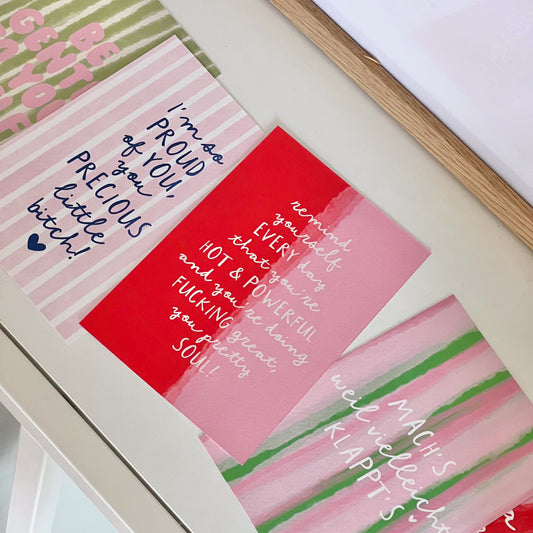 BE
GENT
TO YOU
I'm so
PROUD
of YOU,
you
PRECIOUS
little
bitch!
remind
yourself
EVERY day
that you're
HOT & POWERFUL
and you're doing
FUCKING great,
you pretty
SOUL!
MACH'S
weil vielleicht
KLAPPT'S